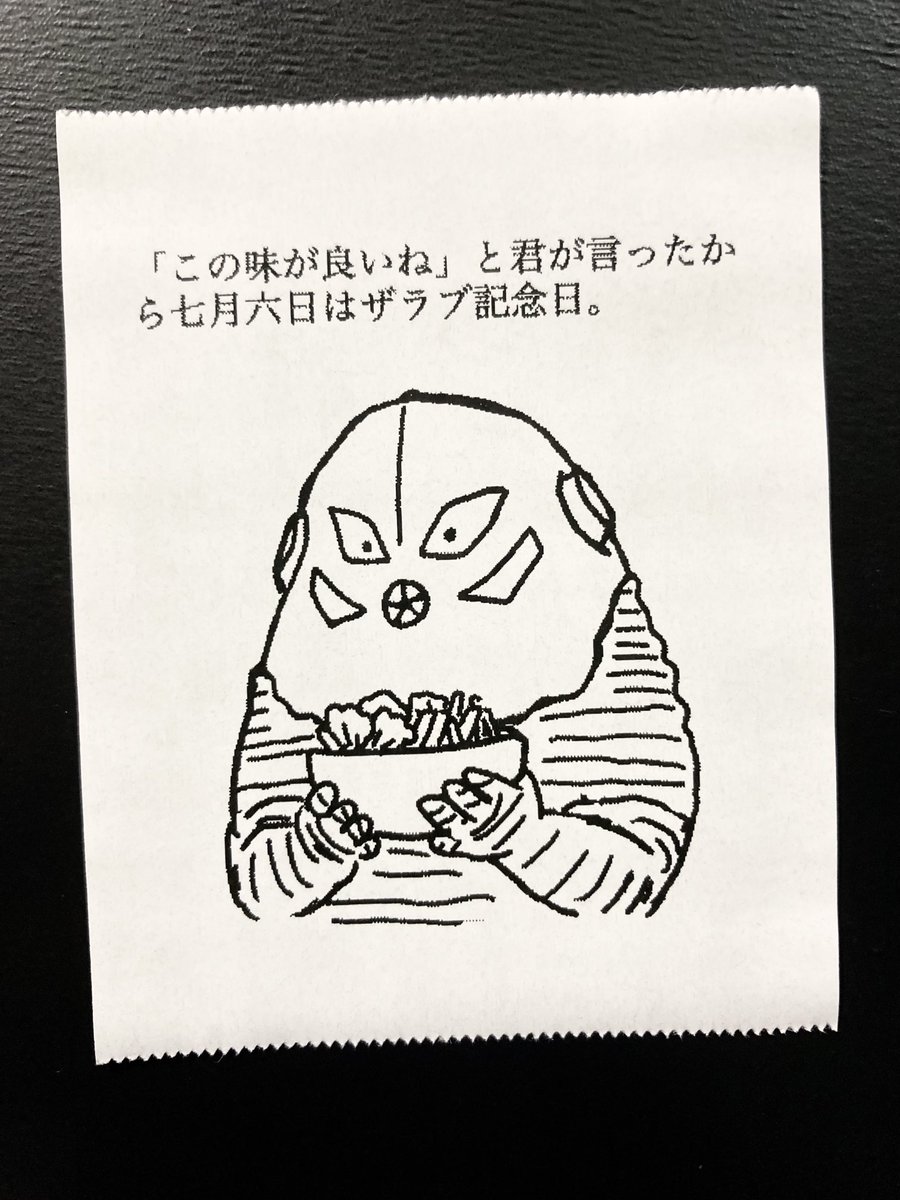 「この味が良いね」と君が言ったか
ら七月六日はザラブ記念日。